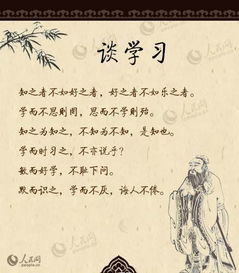 人民网
谈学习
知之者不如好之者，好之者不如乐之者。
学而不思则罔，思而不学则殆。
知之为知之，不知为不知，是知也。
学而时习之，不亦说乎？
敏而好学，不耻下问。
默而识之，学而不厌，诲人不倦。
人民网
people.cn